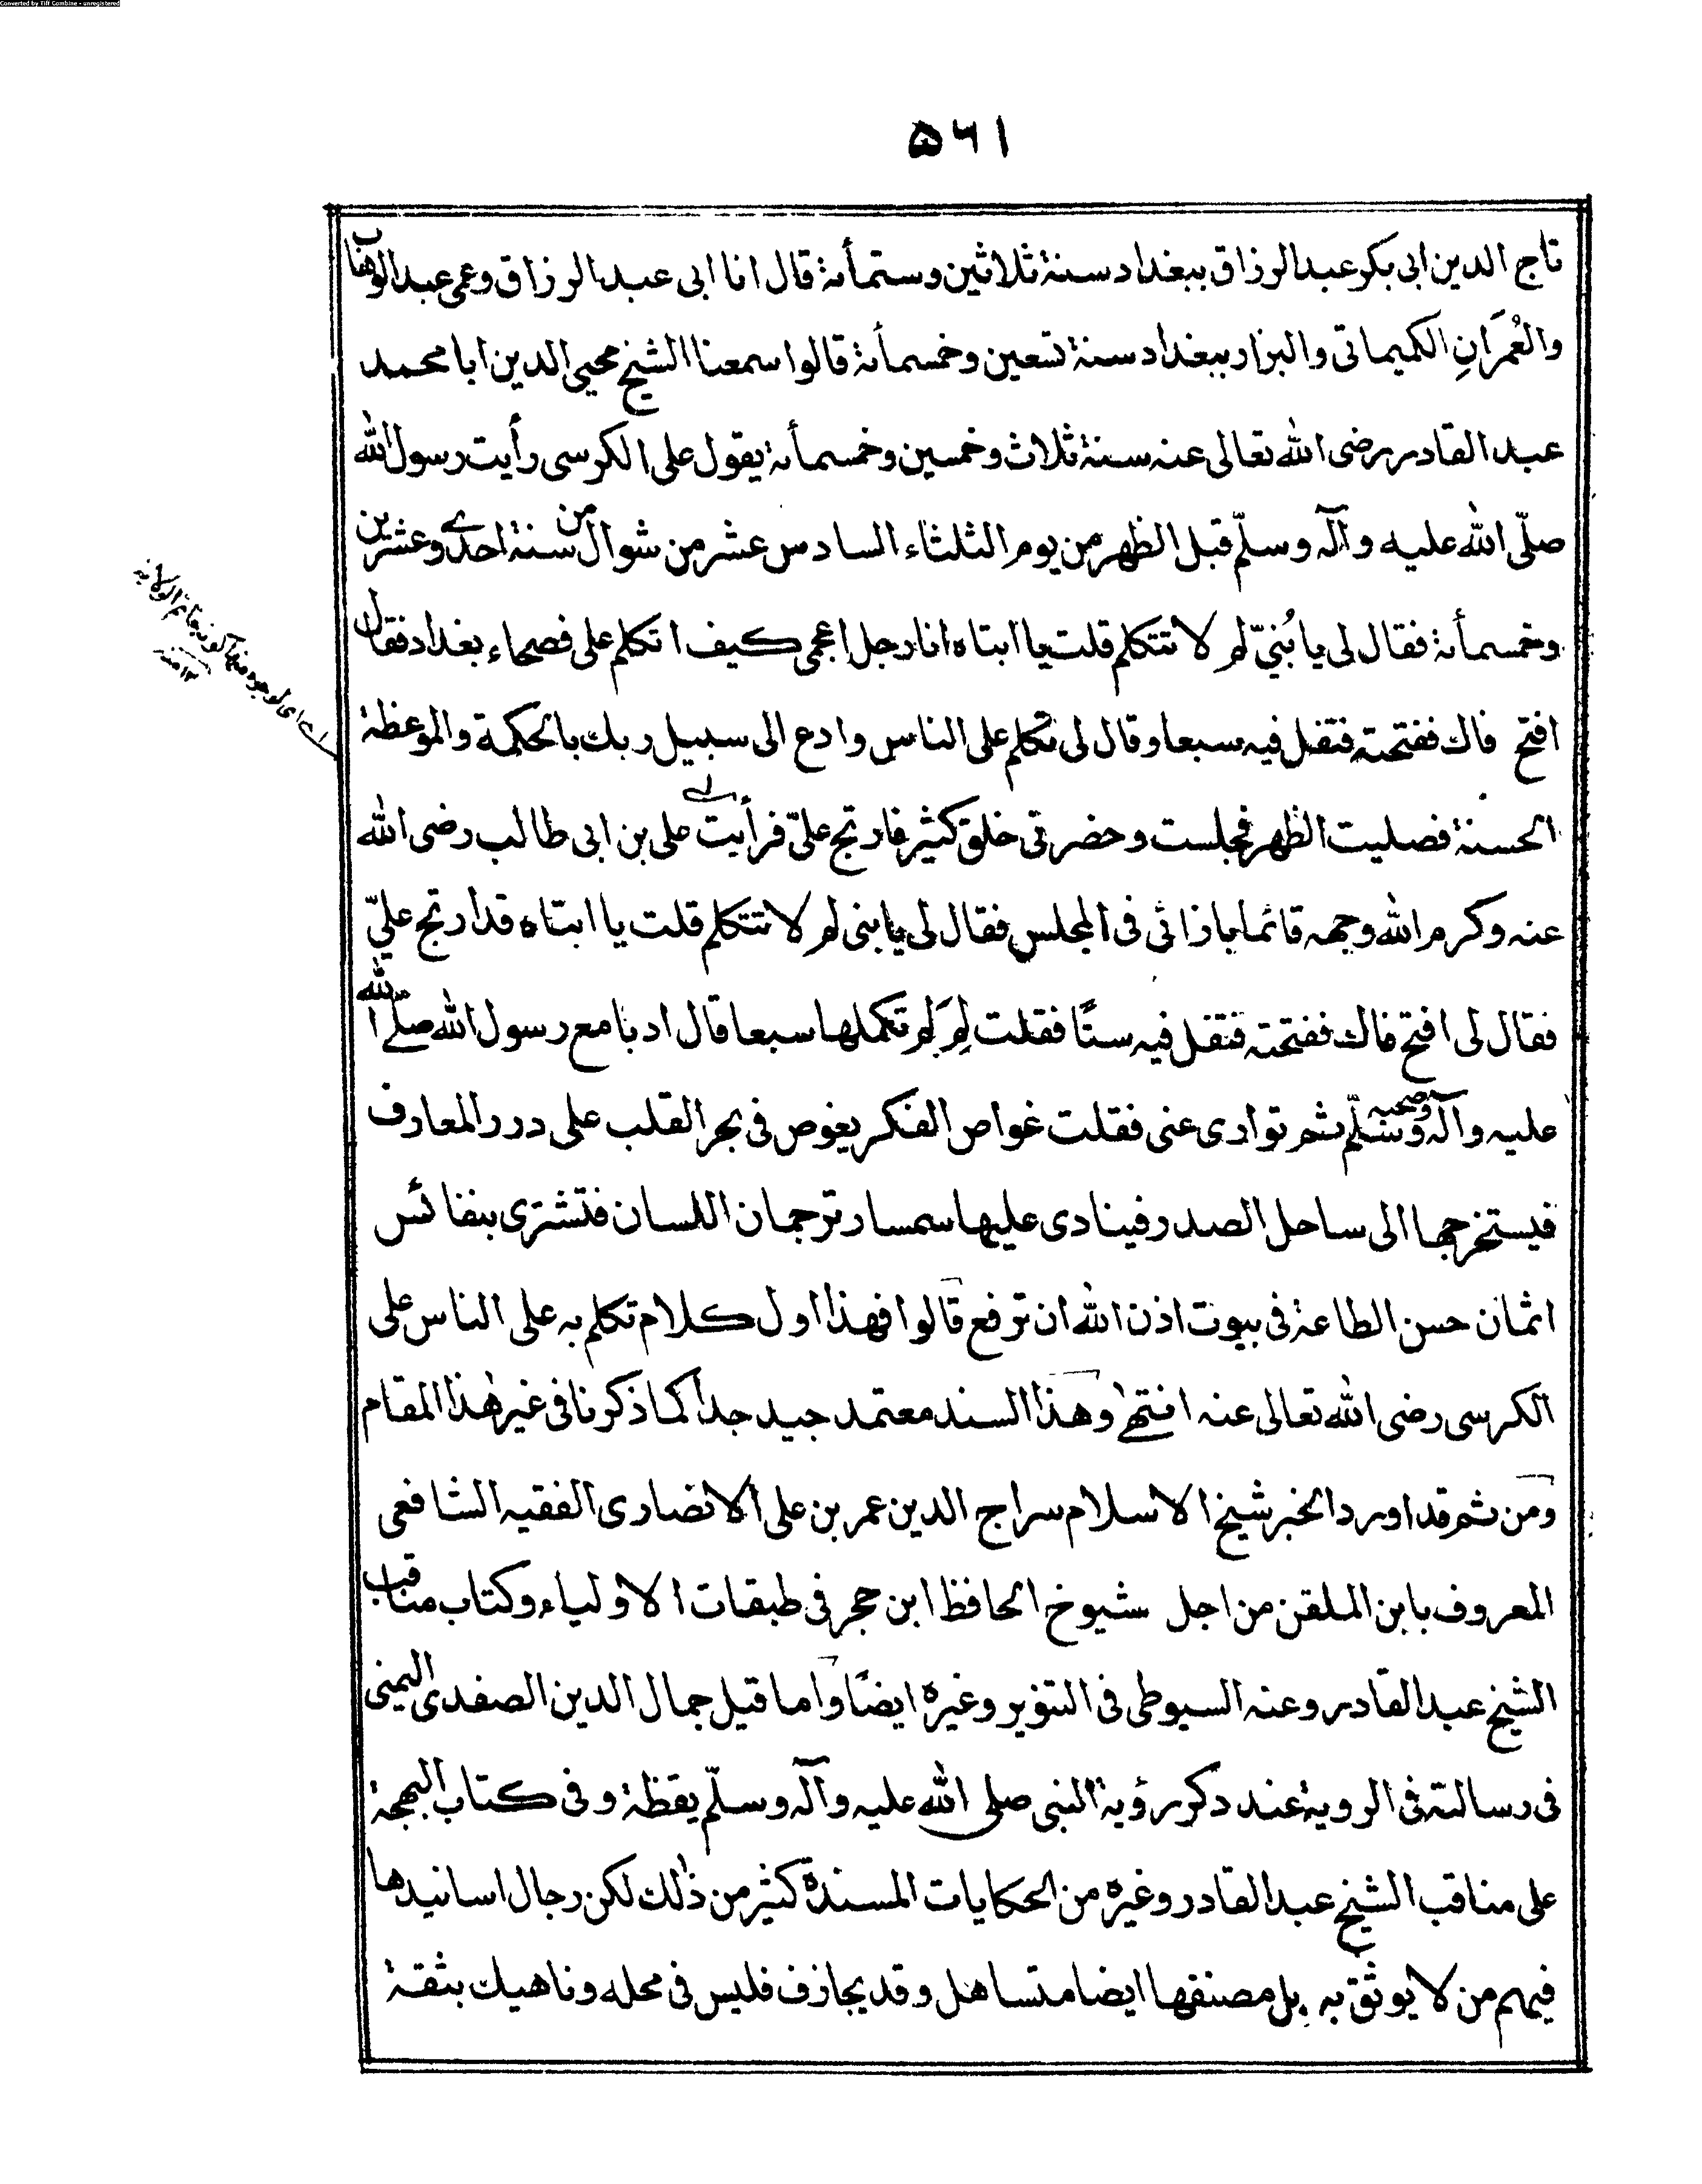 Converted by Tiff Combine - unregistered
۵۶۱
تاج الدين ابى بكر عبد الرزاق ببغداد سنة ثلاثين وستمأنة قال انا ابى عبد الرزاق وعمى عبد الوهاب
والعُمَرَانِ الكميماتى والبزار ببغداد سنة تسعين وخمسمأنة قالوا سمعنا الشيخ محيى الدين ابا محمد
عبد القادر رضى الله تعالى عنه سنة ثلاث وخمسين وخمسمأنة يقول على الكرسى رأيت رسول الله
صلّى الله عليه وآله وسلّم قبل الظهر من يوم الثلثاء السادس عشر من شوال من سنة احدے وعشرين
وخمسمأنة فقال لى يا بُنىّ لم لا تتكلم قلت يا ابتاه انا رجل اعجمى كيف اتكلم على فصحاء بغداد فقال
افتح فاك ففتحته فتفل فيه سبعا وقال لى تكلم على الناس وادع الى سبيل ربك بالحكمة والموعظة
الحسنة فصليت الظهر فجلست وحضرنى خلق كثير فارتج علىّ فرأيت علی بن ابى طالب رضى الله
عنه وكرم الله وجهه قائما بازائى فى المجلس فقال لى يا بنى لم لا تتكلم قلت يا ابتاه قد ارتج علىّ
فقال لى افتح فاك ففتحته فتفل فيه ستًا فقلت لِمَ لم تكملها سبعا قال ادبا مع رسول الله صلے الله
عليه وآله وصحبه وسلّم ثم توارى عنى فقلت غواص الفكر يغوص فى بحر القلب على درر المعارف
فيستخرجها الى ساحل الصدر فينادى عليها سمسار ترجمان اللسان فتشترى بنفائس
اثمان حسن الطاعة فى بيوت اذن الله ان ترفع قالوا فهذا اول كلام تكلم به على الناس على
الكرسى رضى الله تعالى عنه انتهٰے وهذا السند معتمد جيد جدا كما ذكرنا فى غير هٰذا المقام
ومن ثم قد اورد الخبر شيخ الاسلام سراج الدين عمر بن على الانصارى الفقيه الشافعى
المعروف بابن الملقن من اجل شيوخ الحافظ ابن حجر فى طبقات الاولياء وكتاب مناقب
الشيخ عبد القادر وعنه السيوطى فى التنوير وغيره ايضًا واما قيل جمال الدين الصفدى اليمنى
فى رسالته فى الروية عند ذكر رؤية النبى صلى الله عليه وآله وسلّم يقظة وفى كتاب البهجة
على مناقب الشيخ عبد القادر وغيره من الحكايات المسندة كثير من ذٰلك لكن رجال اسانيدها
فيهم من لا يوثق به بل مصنفها ايضا متساهل وقد يجازف فليس فى محله وناهيك بثقة